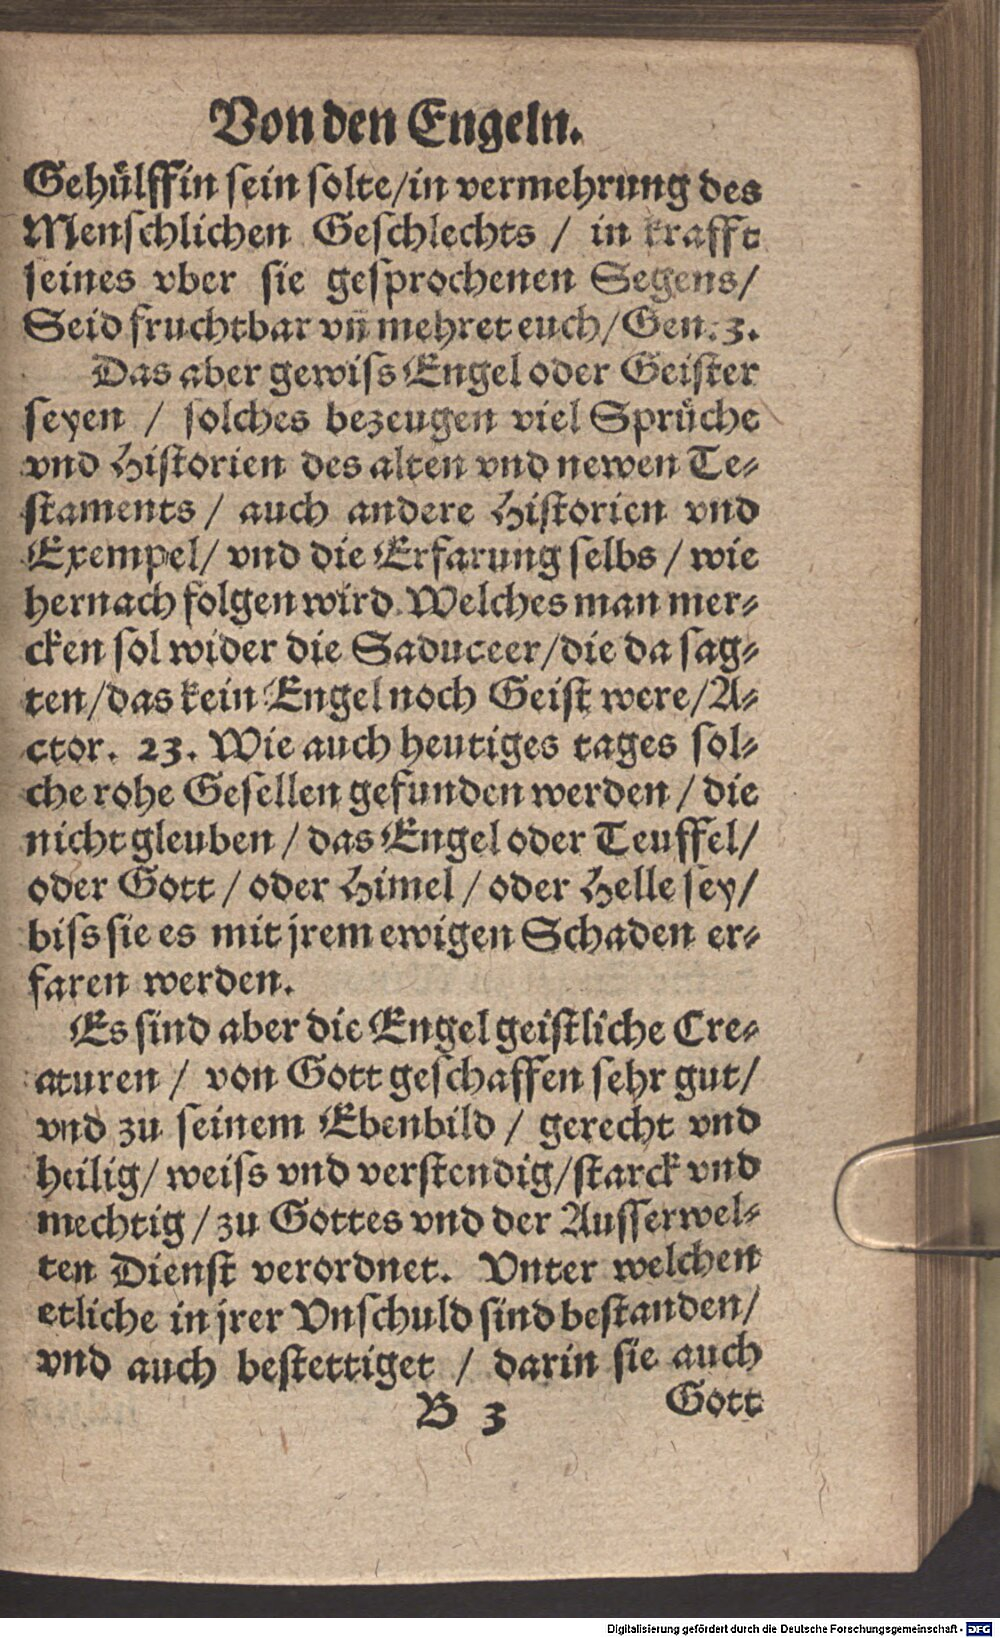 Von den Engeln.
Gehülffin sein solte/in vermehrung des
Menschlichen Geschlechts / in krafft
seines vber sie gesprochenen Segens/
Seid fruchtbar vñ mehret euch/Gen. 3.
Das aber gewiss Engel oder Geister
seyen / solches bezeugen viel Sprüche
vnd Historien des alten vnd newen Te-
staments / auch andere Historien vnd
Exempel/ vnd die Erfarung selbs / wie
hernach folgen wird. Welches man mer-
cken sol wider die Saduceer/die da sag-
ten/das kein Engel noch Geist were/A-
ctor. 23. Wie auch heutiges tages sol-
che rohe Gesellen gefunden werden / die
nicht gleuben / das Engel oder Teuffel/
oder Gott / oder Himel / oder Helle sey/
biss sie es mit jrem ewigen Schaden er-
faren werden.
Es sind aber die Engel geistliche Cre-
aturen / von Gott geschaffen sehr gut/
vnd zu seinem Ebenbild / gerecht vnd
heilig/ weiss vnd verstendig/starck vnd
mechtig / zu Gottes vnd der Ausserwel-
ten Dienst verordnet. Vnter welchen
etliche in jrer Vnschuld sind bestanden/
vnd auch bestettiget / darin sie auch
B 3 Gott
Digitalisierung gefördert durch die Deutsche Forschungsgemeinschaft - DFG